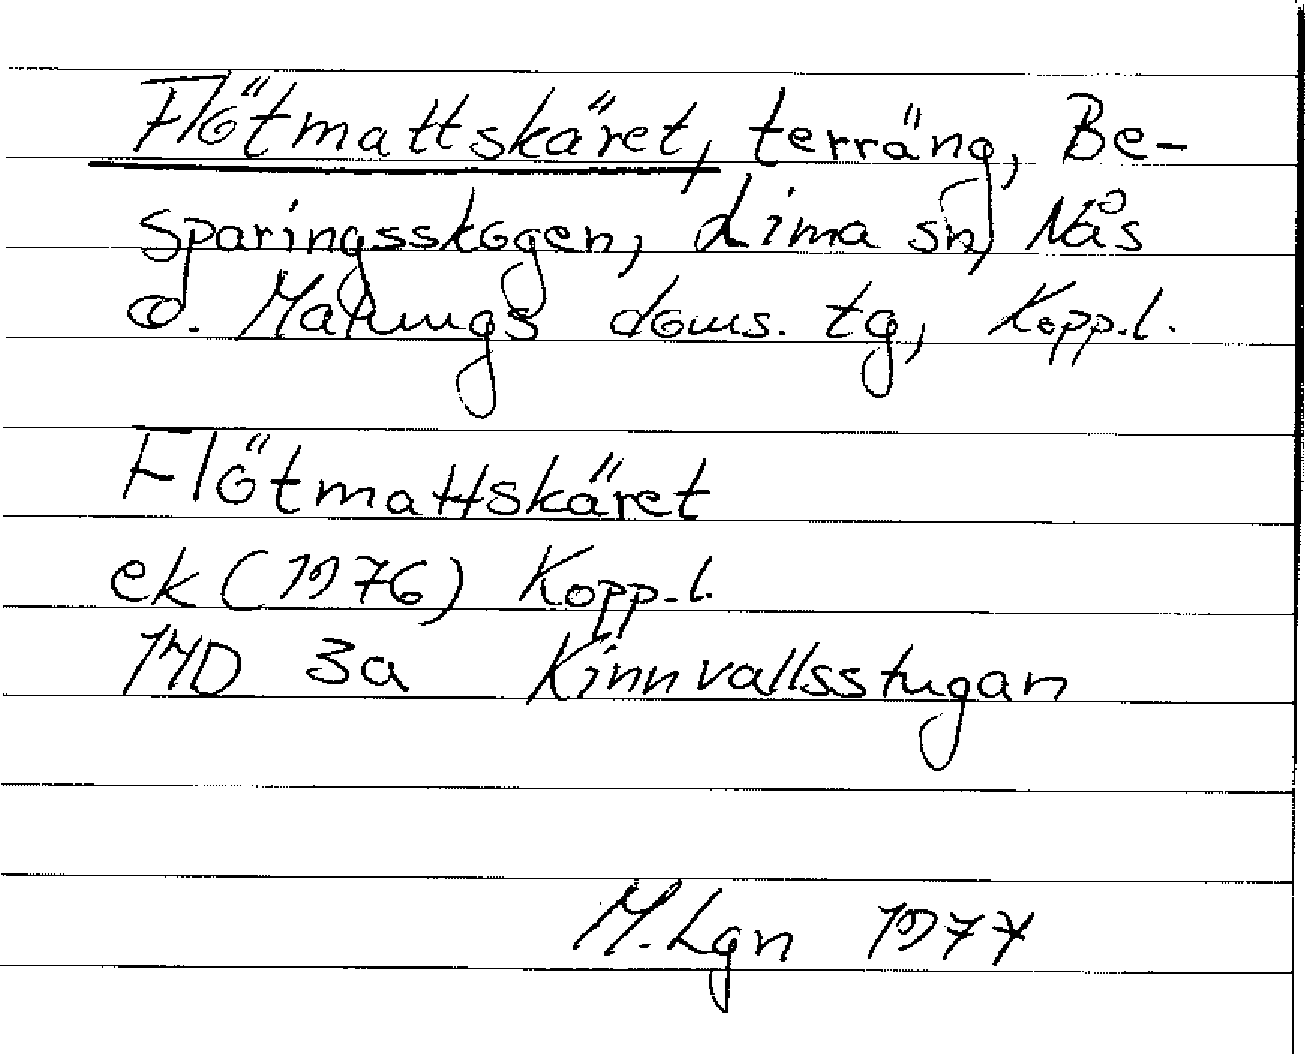 Flötmattskäret, terräng, Be-
sparingsskogen, Lima sn, Nås
o. Malungs doms. tg, Kopp.l.
Flötmattskäret
ek (1976) Kopp.l.
14D 3a Kinnvallsstugan
M. Lgn 1977